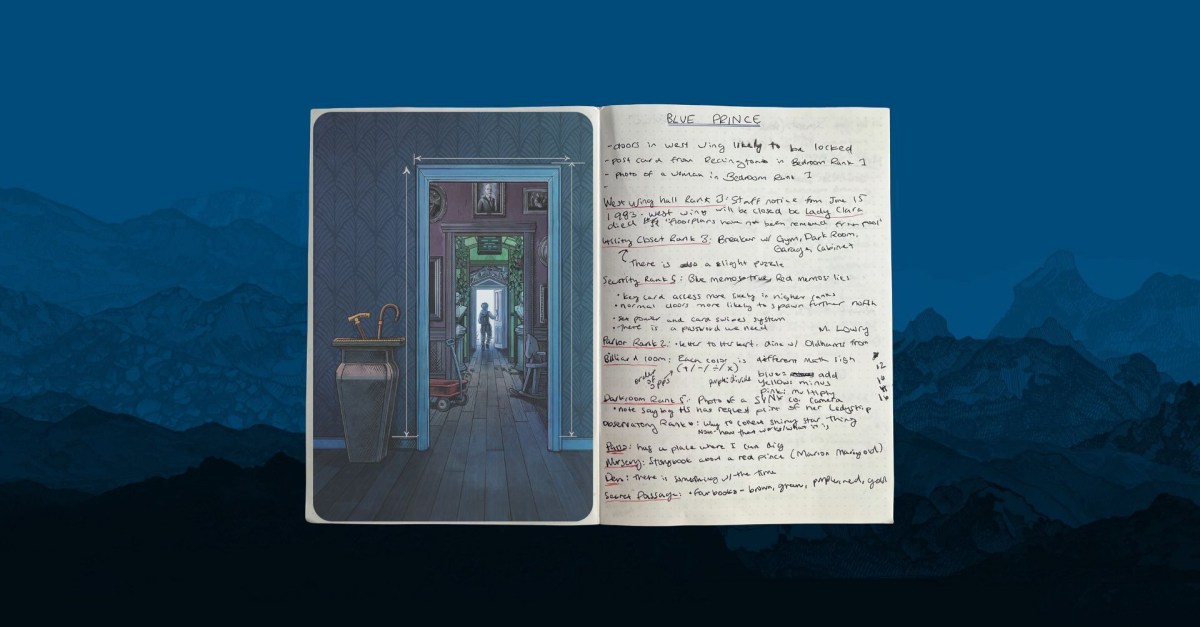 BLUE PRINCE
- doors in west wing likely to be locked
- post card from Reddington in Bedroom Rank 1
- photo of a woman in Bedroom Rank 1
-
West Wing hall Rank 3: Staff notice from June 15
1993 - west wing will be closed bc Lady Clara
died "floorplans have not been removed from pool"
Utility Closet Rank 3: Breaker w/ Gym, Dark Room,
Garage, Cabinet
There is also a slight puzzle
Security Rank 5: Blue memos true, Red memos lies
• key card access more likely in higher ranks
• normal doors more likely to spawn further north
• see power and card swipes system
• There is a password we need
M. Lowry
Parlor Rank 2: • letter to Herbert. dine w/ Oldhams from
Billiard room: Each color is different math sign
(+/-/÷/x)
order of opps
blues add
12
purple: divide
yellows minus
10
Pink: multiply
Darkroom Rank 5: Photo of a SYNK Co. Camera
16
• note saying HS has request print of her Ladyship
Observatory Rank : Way to collect shiny star thing
Patio: has a place where I can dig
Nursery: Storybook about a red prince (Marion Marigold)
Den: there is something w/ the time
Secret Passage: • four books - brown, green, red, gold